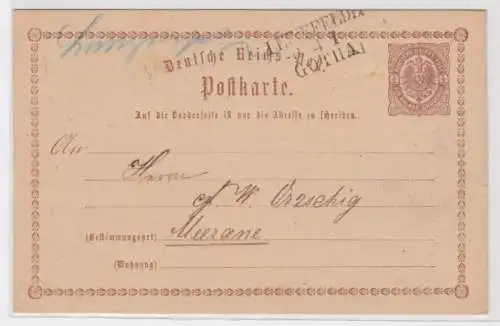 Deutsche Reichs-
Postkarte.
GOTHA
Auf die Vorderseite ist nur die Adresse zu schreiben.
An
Herrn
W. Orzschig
(Bestimmungsort) Meerane
(Wohnung)